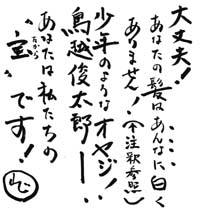 大丈夫!
あなたの髪はあんなに白く
ありません!(本注釈参照)
少年のようなオヤジ!
鳥越俊太郎ー
あなたは私たちの
"宝"です!
たから